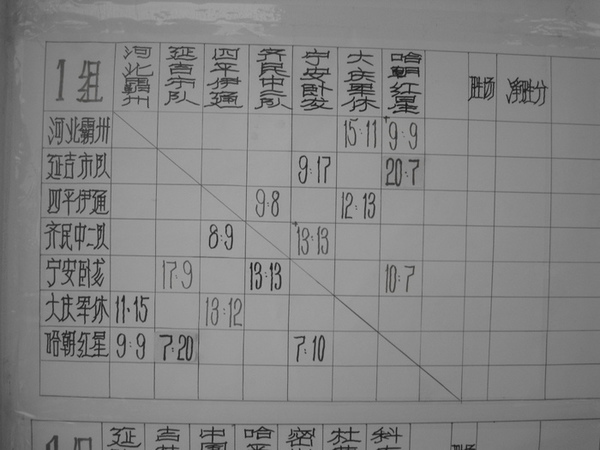 1组 河北霸州 延吉市队 四平伊通 齐民中二队 宁安卧龙 大庆军休 哈朝红星 胜场 净胜分
河北霸州 15:11 +9:9
延吉市队 9:17 20:7
四平伊通 9:8 12:13
齐民中二队 8:9 +13:13
宁安卧龙 17:9 13:13 10:7
大庆军休 11:15 13:12
哈朝红星 9:9 7:20 7:10